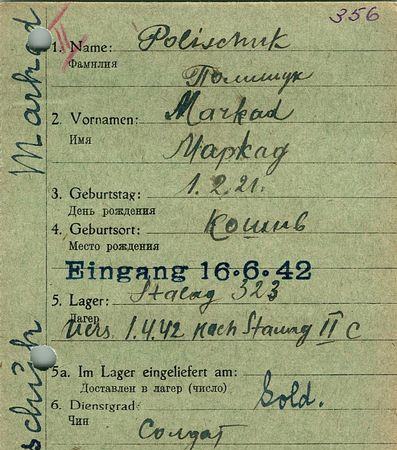 356
II
1. Name: Polischuk
Фамилия
Полищук
2. Vornamen: Markad
Имя
Маркад
3. Geburtstag: 1.2.21.
День рождения
4. Geburtsort: Кошив
Место рождения
Eingang 16.6.42
5. Lager: Stalag 323
Лагерь
Vers. 1.4.42 nach Stalag II C
5a. Im Lager eingeliefert am:
Доставлен в лагер (число)
6. Dienstgrad: Sold.
Чин
Солдат
Markad
schuk